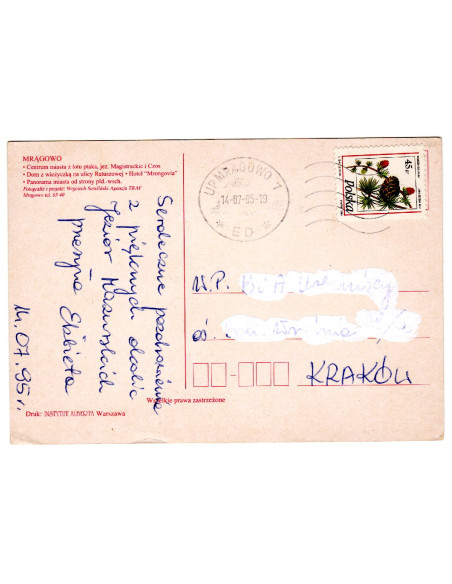 MRĄGOWO
• Centrum miasta z lotu ptaka, jez. Magistrackie i Czos
• Dom z wieżyczką na ulicy Ratuszowej • Hotel "Mrongovia"
• Panorama miasta od strony płd.-wsch.
Fotografie i projekt: Wojciech Agencja TRAF
Mrągowo tel. 65 40
UP MRĄGOWO 1
14-07-95-19
★ ED ★
45 gr
Polska
Serdeczne pozdrowienia
z pięknych okolic
Jezior Mazurskich
przesyła Elżbieta
14.07.95r.
W.P.
oś.
KRAKÓW
Druk: Warszawa
Wszelkie prawa zastrzeżone